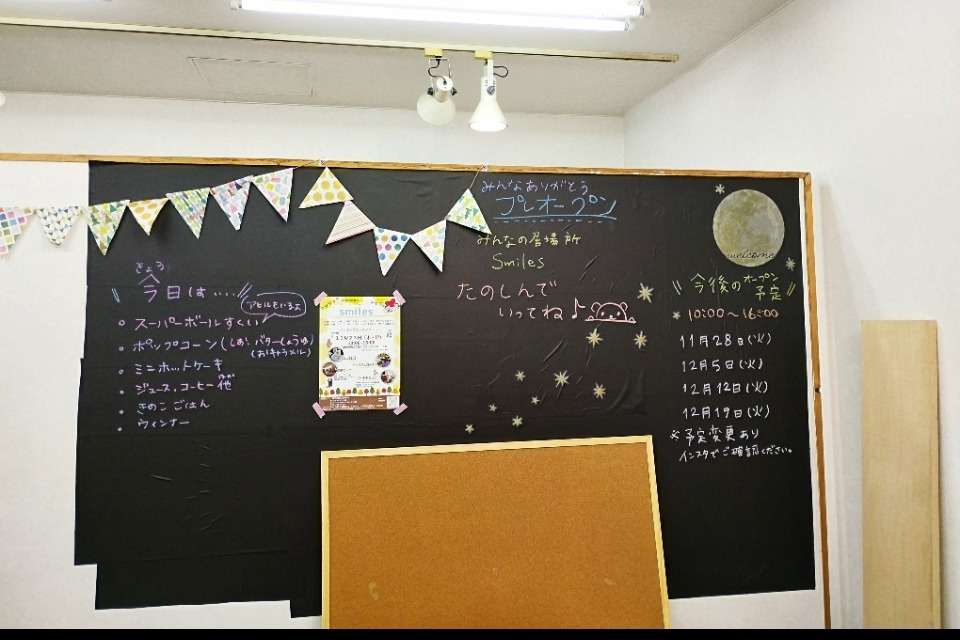 みんなありがとう
プレオープン
みんなの居場所
Smiles
たのしんで
いってね♪
きょう
今日は....
アヒルもいるよ
スーパーボールすくい
ポップコーン(しお、バターしょうゆ)
(おキャラメル)
ミニホットケーキ
ジュース、コーヒー他
きのこごはん
ウィンナー
smiles
welcome
今後のオープン
予定
10:00〜16:00
11月28日(火)
12月5日(火)
12月12日(火)
12月19日(火)
※予定変更あり
インスタでご確認ください。